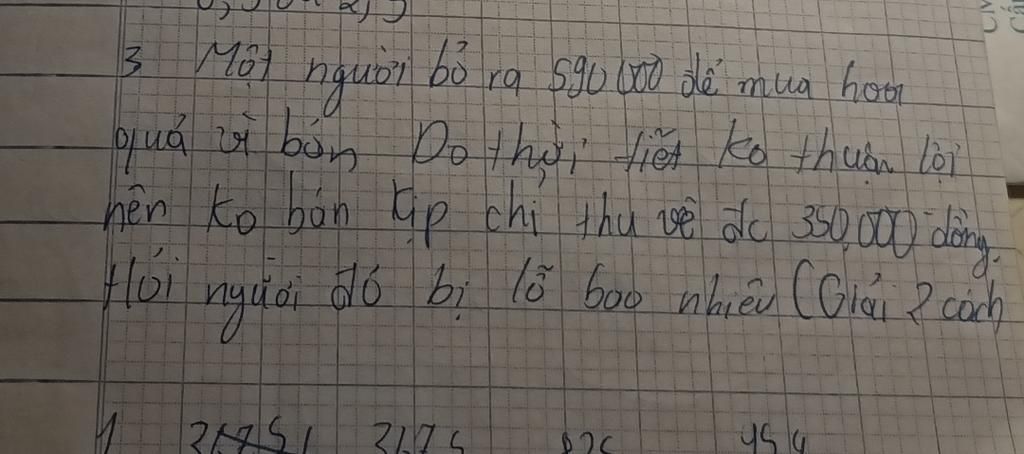 3 Một người bỏ ra 590 000 để mua hoa
quả về bán Do thời tiết ko thuận lợi
nên ko bán kịp chỉ thu về đc 350,000 đồng.
Hỏi người đó bị lỗ bao nhiêu (Giải 2 cách